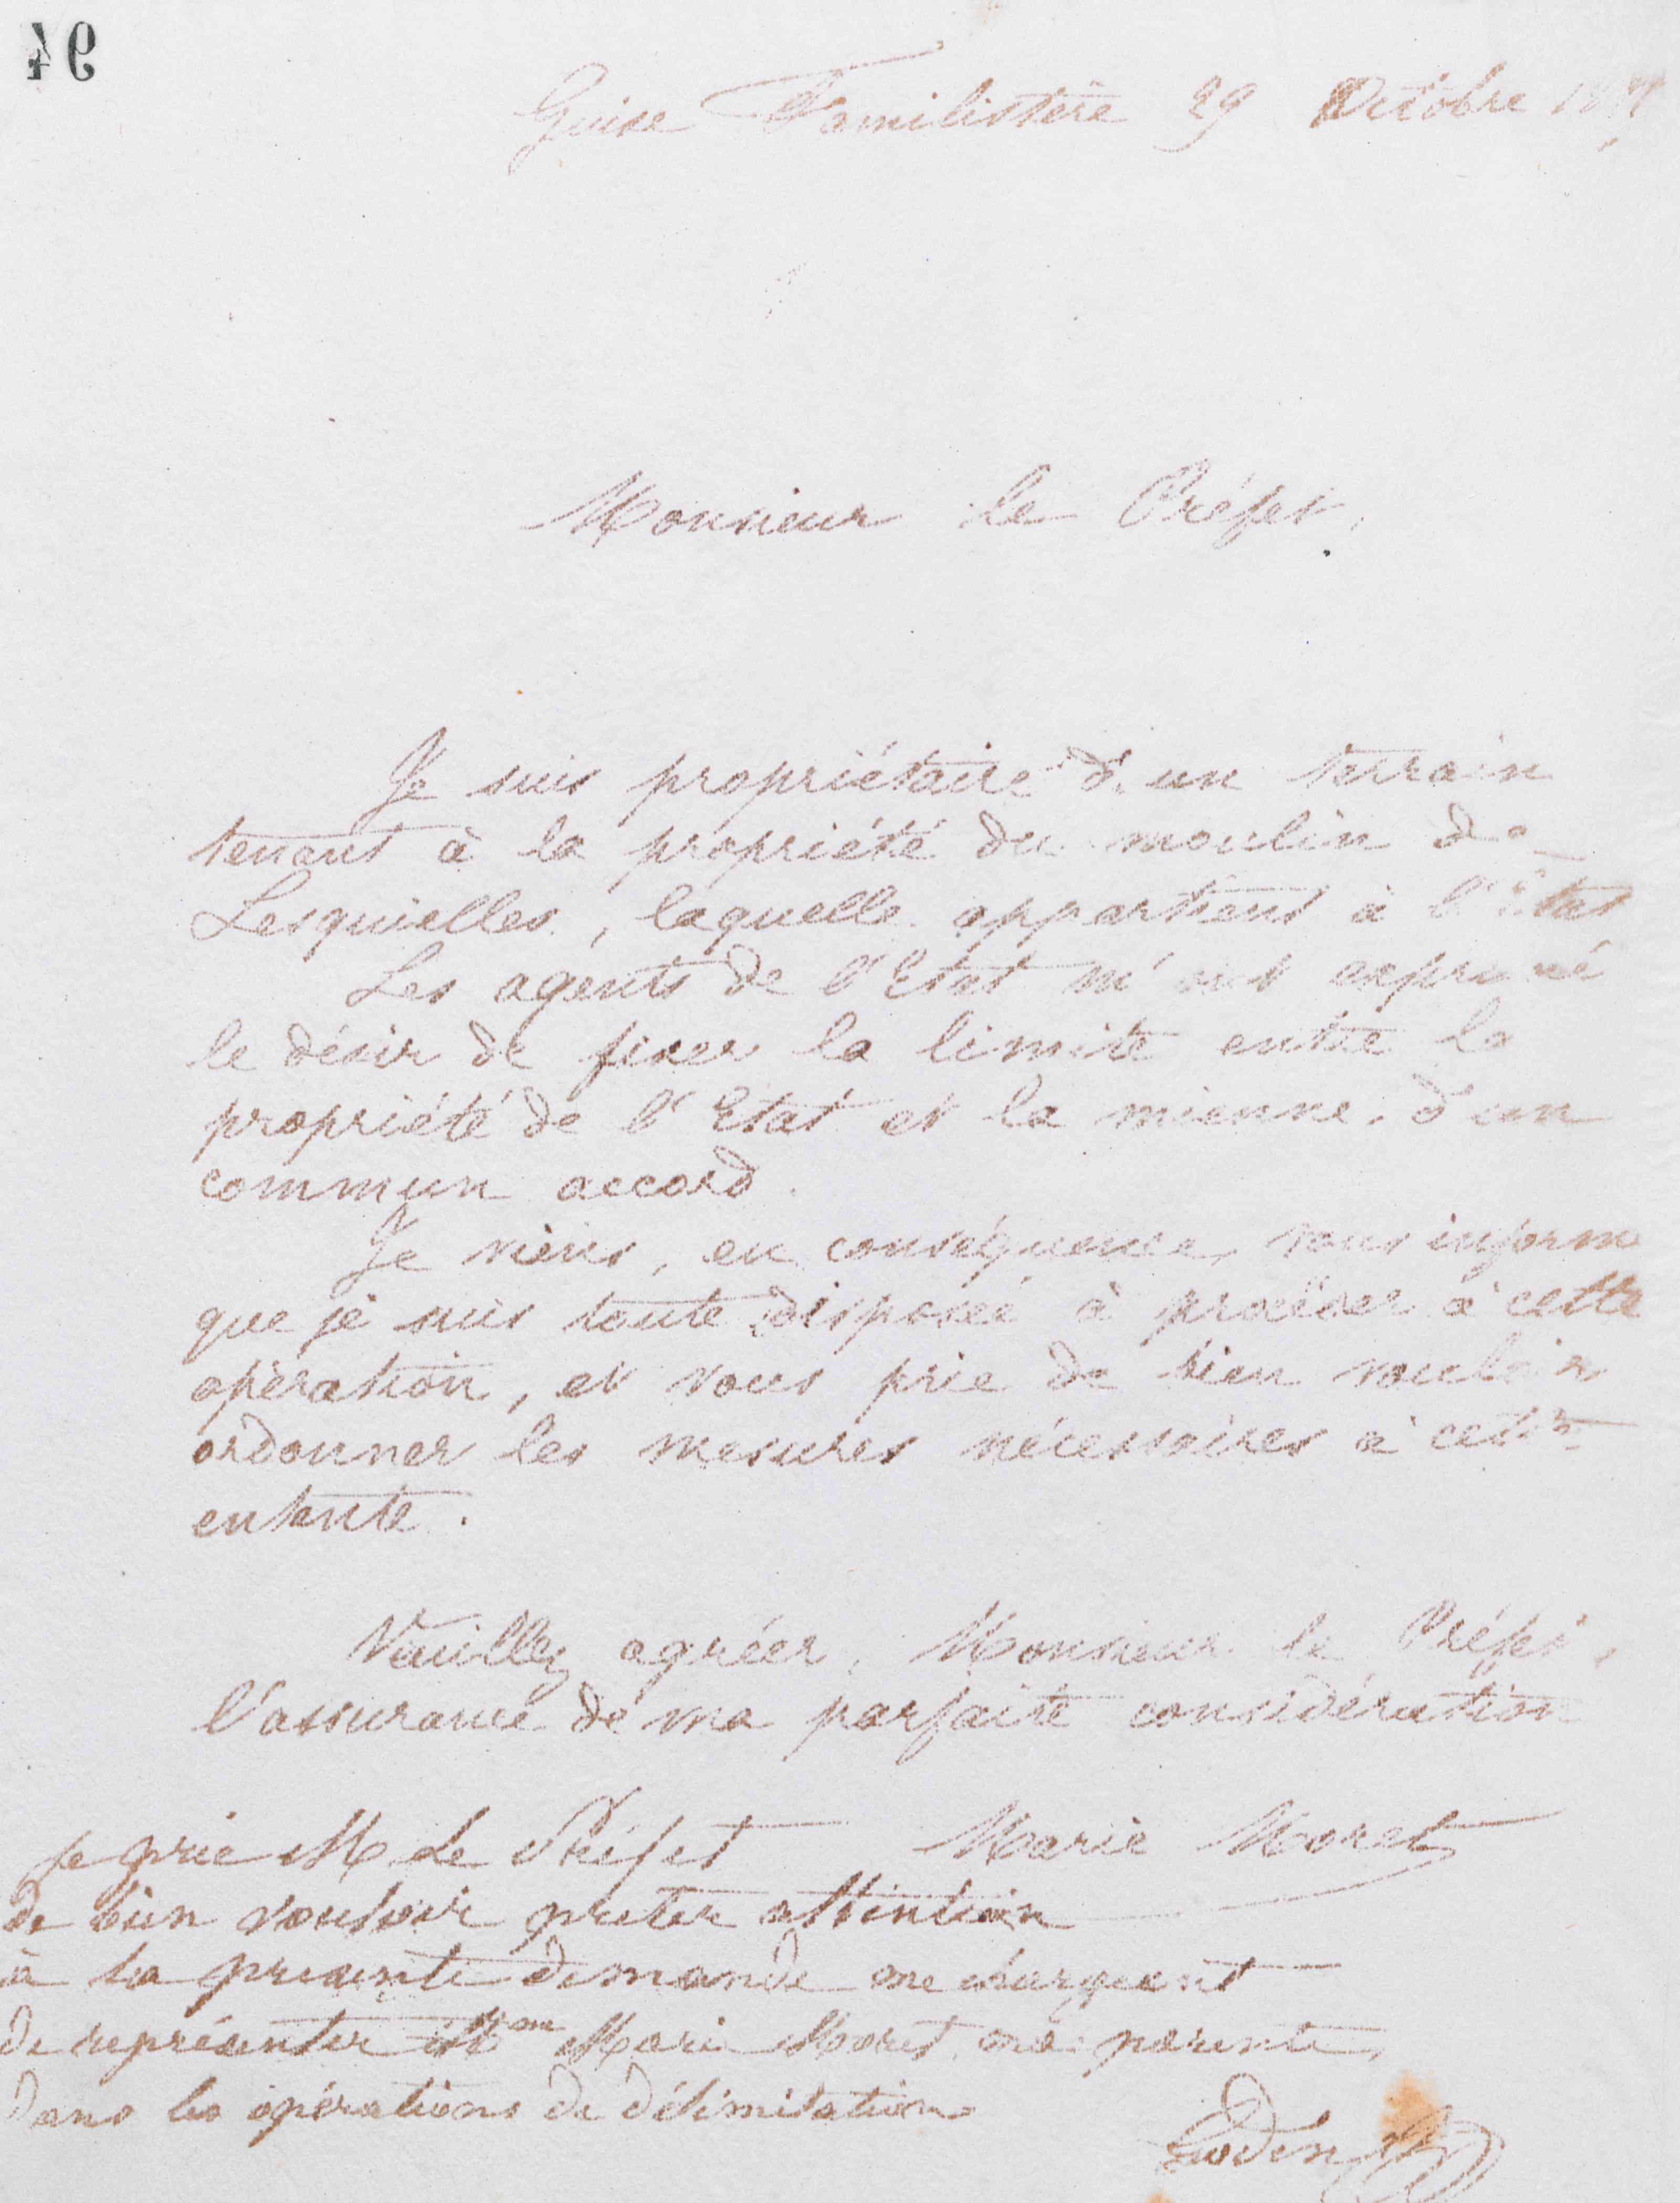 94
Guise Familistère 29 Octobre
Monsieur le Préfet,
Je suis propriétaire d'un terrain
tenant à la propriété du moulin de
Lesquielles, laquelle appartient à l'Etat
Les agents de l'Etat m'ont exprimé
le désir de fixer la limite entre la
propriété de l'Etat et la mienne, d'un
commun accord.
Je viens, en conséquence, vous informe
que je suis toute disposée à procéder à cette
opération, et vous prie de bien vouloir
ordonner les mesures nécessaires à cette
entente.
Veuillez agréer, Monsieur le Préfet,
l'assurance de ma parfaite considération
Marie Moret
Je prie M le Préfet
de bien vouloir preter attention
à la présente demande me chargeant
de représenter Mme Marie Moret ma parente,
dans les opérations de délimitation
Godin